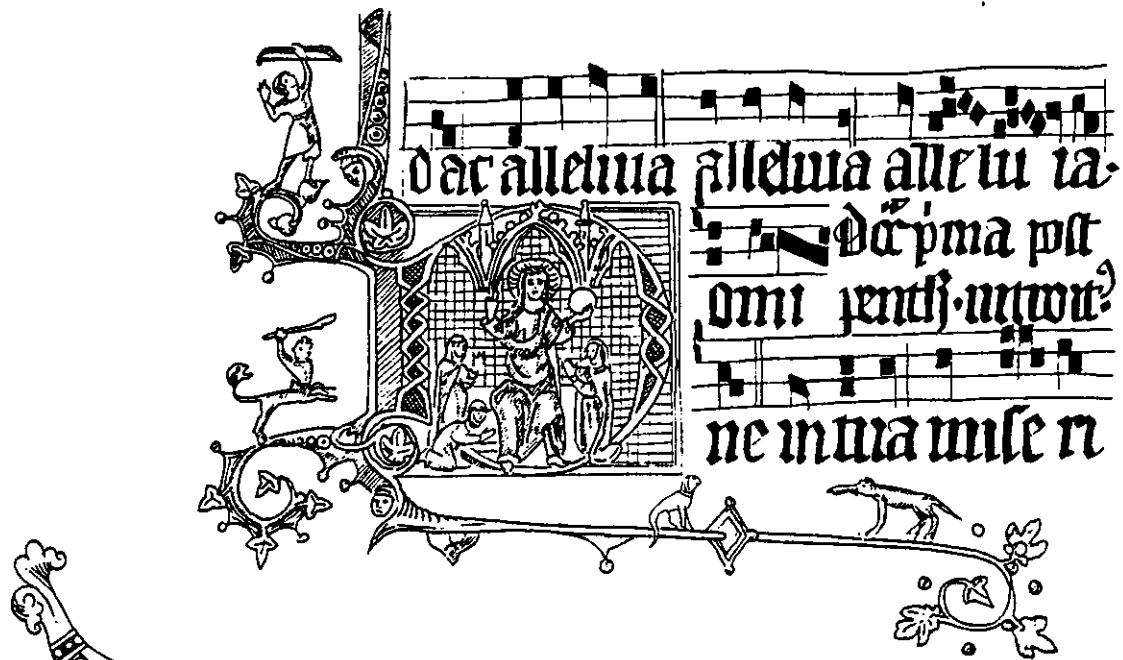 d ac alleluia alleluia allelu ia.
Dcc pma post
omi pentħ. introit
ne in tua mise ri